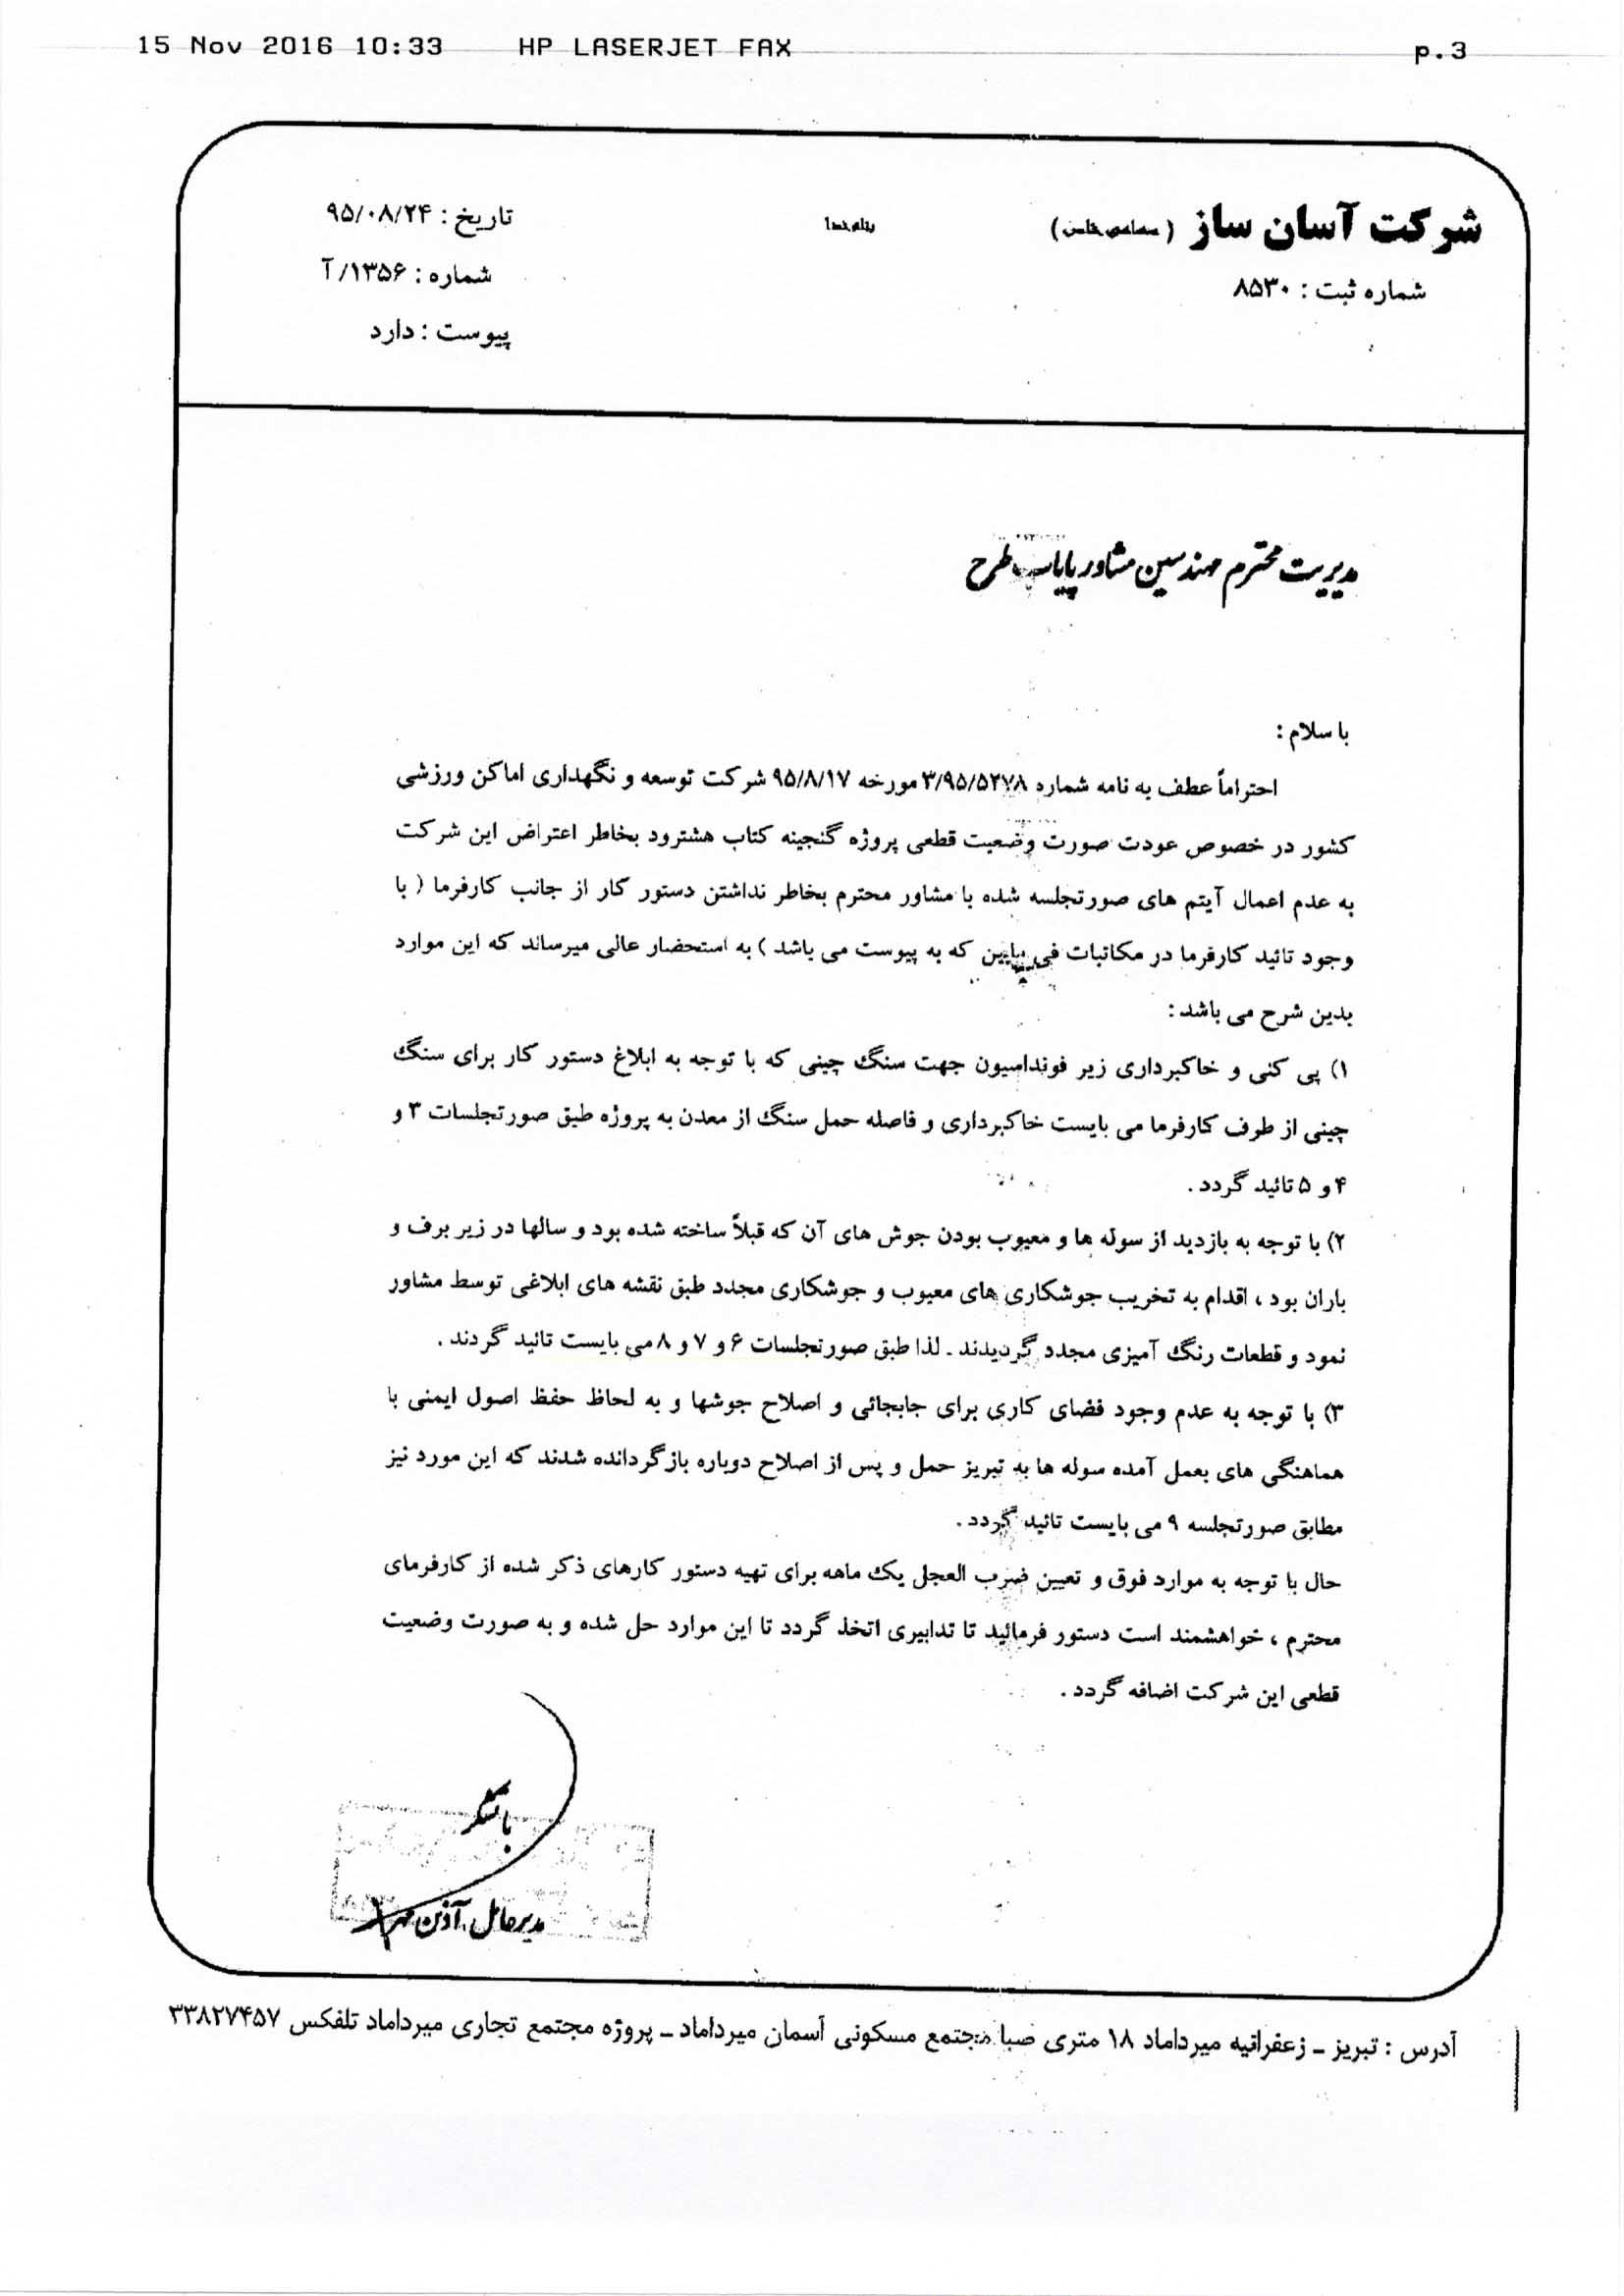 15 Nov 2016 10:33 HP LASERJET FAX p.3
شرکت آسان ساز (سهامی خاص)
بنام خدا
تاریخ : ۹۵/۰۸/۲۴
شماره ثبت : ۸۵۳۰
شماره : ۱۳۵۶/آ
پیوست : دارد
مدیریت محترم مهندسین مشاور پایاب طرح
با سلام :
احتراماً عطف به نامه شماره ۳/۹۵/۵۲۷۸ مورخه ۹۵/۸/۱۷ شرکت توسعه و نگهداری اماکن ورزشی
کشور در خصوص عودت صورت وضعیت قطعی پروژه گنجینه کتاب هشترود بخاطر اعتراض این شرکت
به عدم اعمال آیتم های صورتجلسه شده با مشاور محترم بخاطر نداشتن دستور کار از جانب کارفرما ( با
وجود تائید کارفرما در مکاتبات فی مابین که به پیوست می باشد ) به استحضار عالی میرساند که این موارد
بدین شرح می باشد :
۱) پی کنی و خاکبرداری زیر فونداسیون جهت سنگ چینی که با توجه به ابلاغ دستور کار برای سنگ
چینی از طرف کارفرما می بایست خاکبرداری و فاصله حمل سنگ از معدن به پروژه طبق صورتجلسات ۳ و
۴ و ۵ تائید گردد .
۲) با توجه به بازدید از سوله ها و معیوب بودن جوش های آن که قبلاً ساخته شده بود و سالها در زیر برف و
باران بود ، اقدام به تخریب جوشکاری های معیوب و جوشکاری مجدد طبق نقشه های ابلاغی توسط مشاور
نمود و قطعات رنگ آمیزی مجدد گردیدند . لذا طبق صورتجلسات ۶ و ۷ و ۸ می بایست تائید گردند .
۳) با توجه به عدم وجود فضای کاری برای جابجائی و اصلاح جوشها و به لحاظ حفظ اصول ایمنی با
هماهنگی های بعمل آمده سوله ها به تبریز حمل و پس از اصلاح دوباره بازگردانده شدند که این مورد نیز
مطابق صورتجلسه ۹ می بایست تائید گردد .
حال با توجه به موارد فوق و تعیین ضرب العجل یک ماهه برای تهیه دستور کارهای ذکر شده از کارفرمای
محترم ، خواهشمند است دستور فرمائید تا تدابیری اتخذ گردد تا این موارد حل شده و به صورت وضعیت
قطعی این شرکت اضافه گردد .
با تشکر
مدیرعامل آذین مهر
آدرس : تبریز - زعفرانیه میرداماد ۱۸ متری صبا مجتمع مسکونی آسمان میرداماد - پروژه مجتمع تجاری میرداماد تلفکس ۳۳۸۲۷۴۵۷